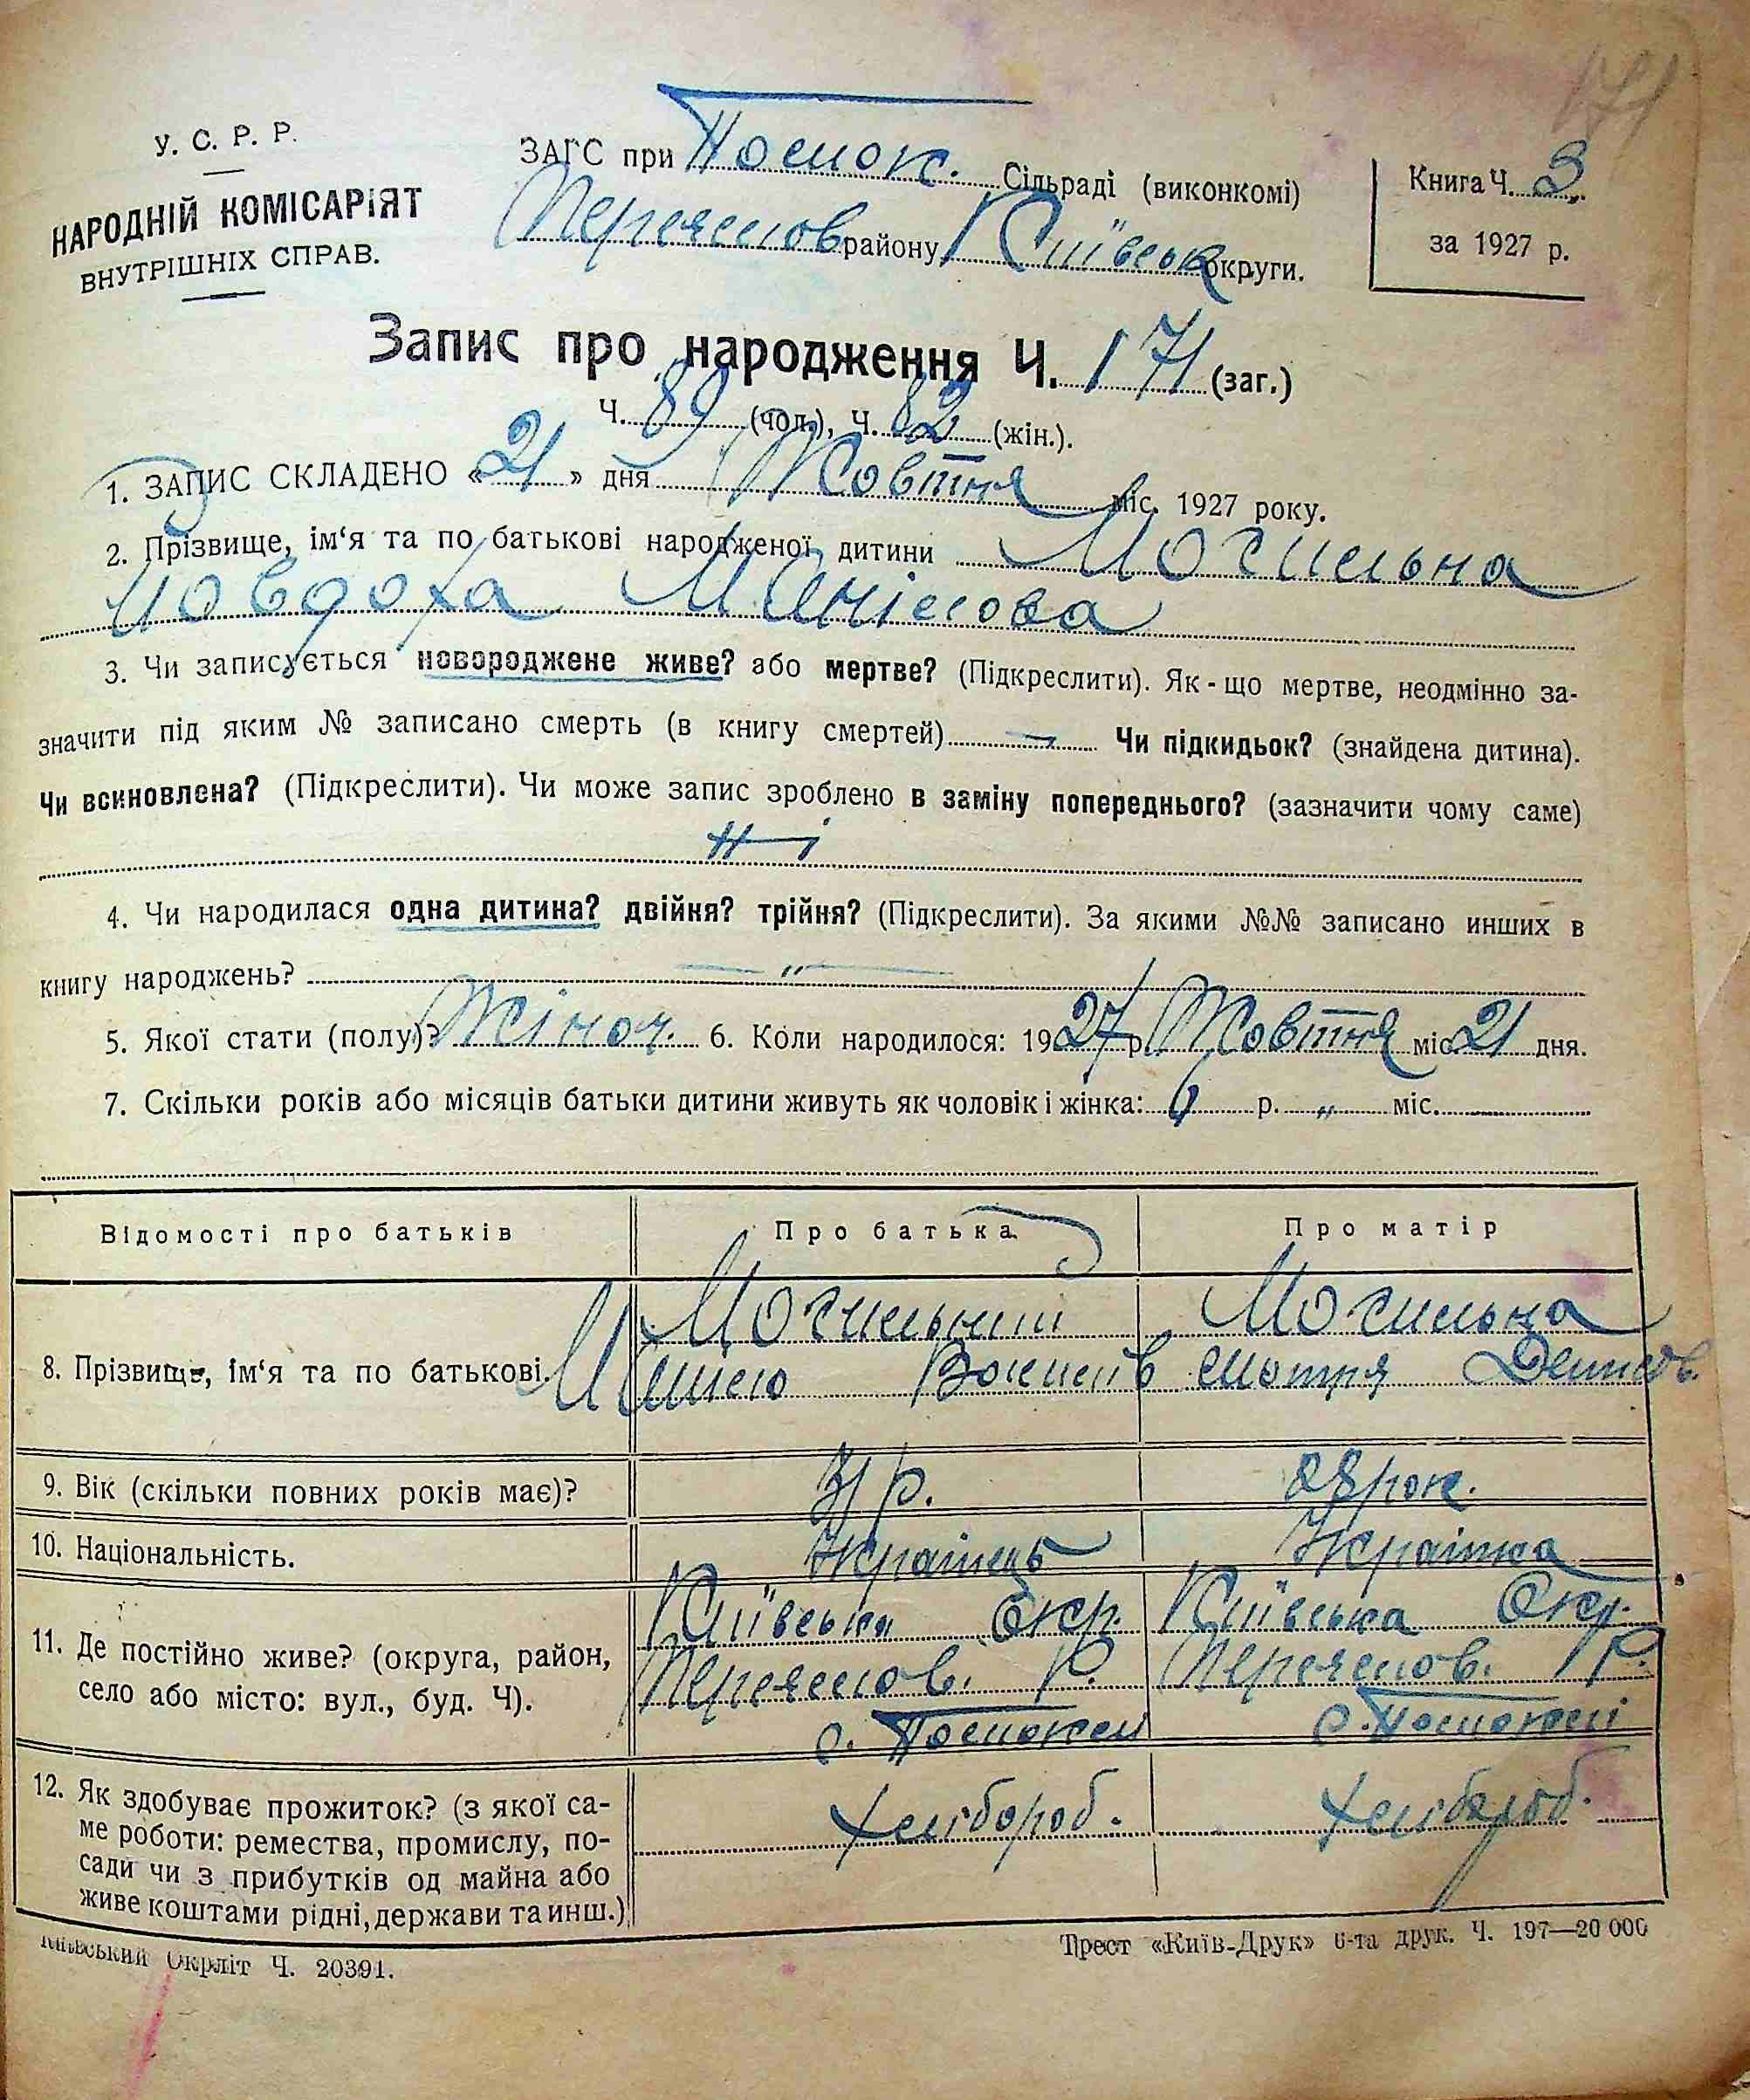 171
У. С. Р. Р.
НАРОДНІЙ КОМІСАРІЯТ
ВНУТРІШНІХ СПРАВ.
ЗАГС при Помок. Сільраді (виконкомі)
району Київськ округи.
Книга Ч. 3
за 1927 р.
Запис про народження Ч. 171 (заг.)
Ч. 89 (чол.), Ч. 82 (жін.).
1. ЗАПИС СКЛАДЕНО « 21 » дня Жовтня міс. 1927 року.
2. Прізвище, ім‘я та по батькові народженої дитини Могильна
Мовдоха
3. Чи записується новороджене живе? або мертве? (Підкреслити). Як-що мертве, неодмінно за-
значити під яким № записано смерть (в книгу смертей) — Чи підкидьок? (знайдена дитина).
Чи всиновлена? (Підкреслити). Чи може запис зроблено в заміну попереднього? (зазначити чому саме)
Ні
4. Чи народилася одна дитина? двійня? трійня? (Підкреслити). За якими №№ записано инших в
книгу народжень? — „ —
5. Якої стати (полу)? Жіноч. 6. Коли народилося: 1927 р. Жовтня міс. 21 дня.
7. Скільки років або місяців батьки дитини живуть як чоловік і жінка: 6 р. „ міс.
Відомості про батьків Про батька Про матір
8. Прізвище, ім‘я та по батькові. Могильний Могильна
Мотря Денисов.
9. Вік (скільки повних років має)? 31 р. 28 рок.
10. Національність. Українець Українка
11. Де постійно живе? (округа, район, село або місто: вул., буд. Ч). Київська Окр. Київська Окр.
Р. Р.
с. с.
12. Як здобуває прожиток? (з якої са-
ме роботи: ремества, промислу, по-
сади чи з прибутків од майна або
живе коштами рідні, держави та инш.) хлібороб. хлібороб.
Київський Окрліт Ч. 20391.
Трест «Київ-Друк» 6-та друк. Ч. 197—20 000